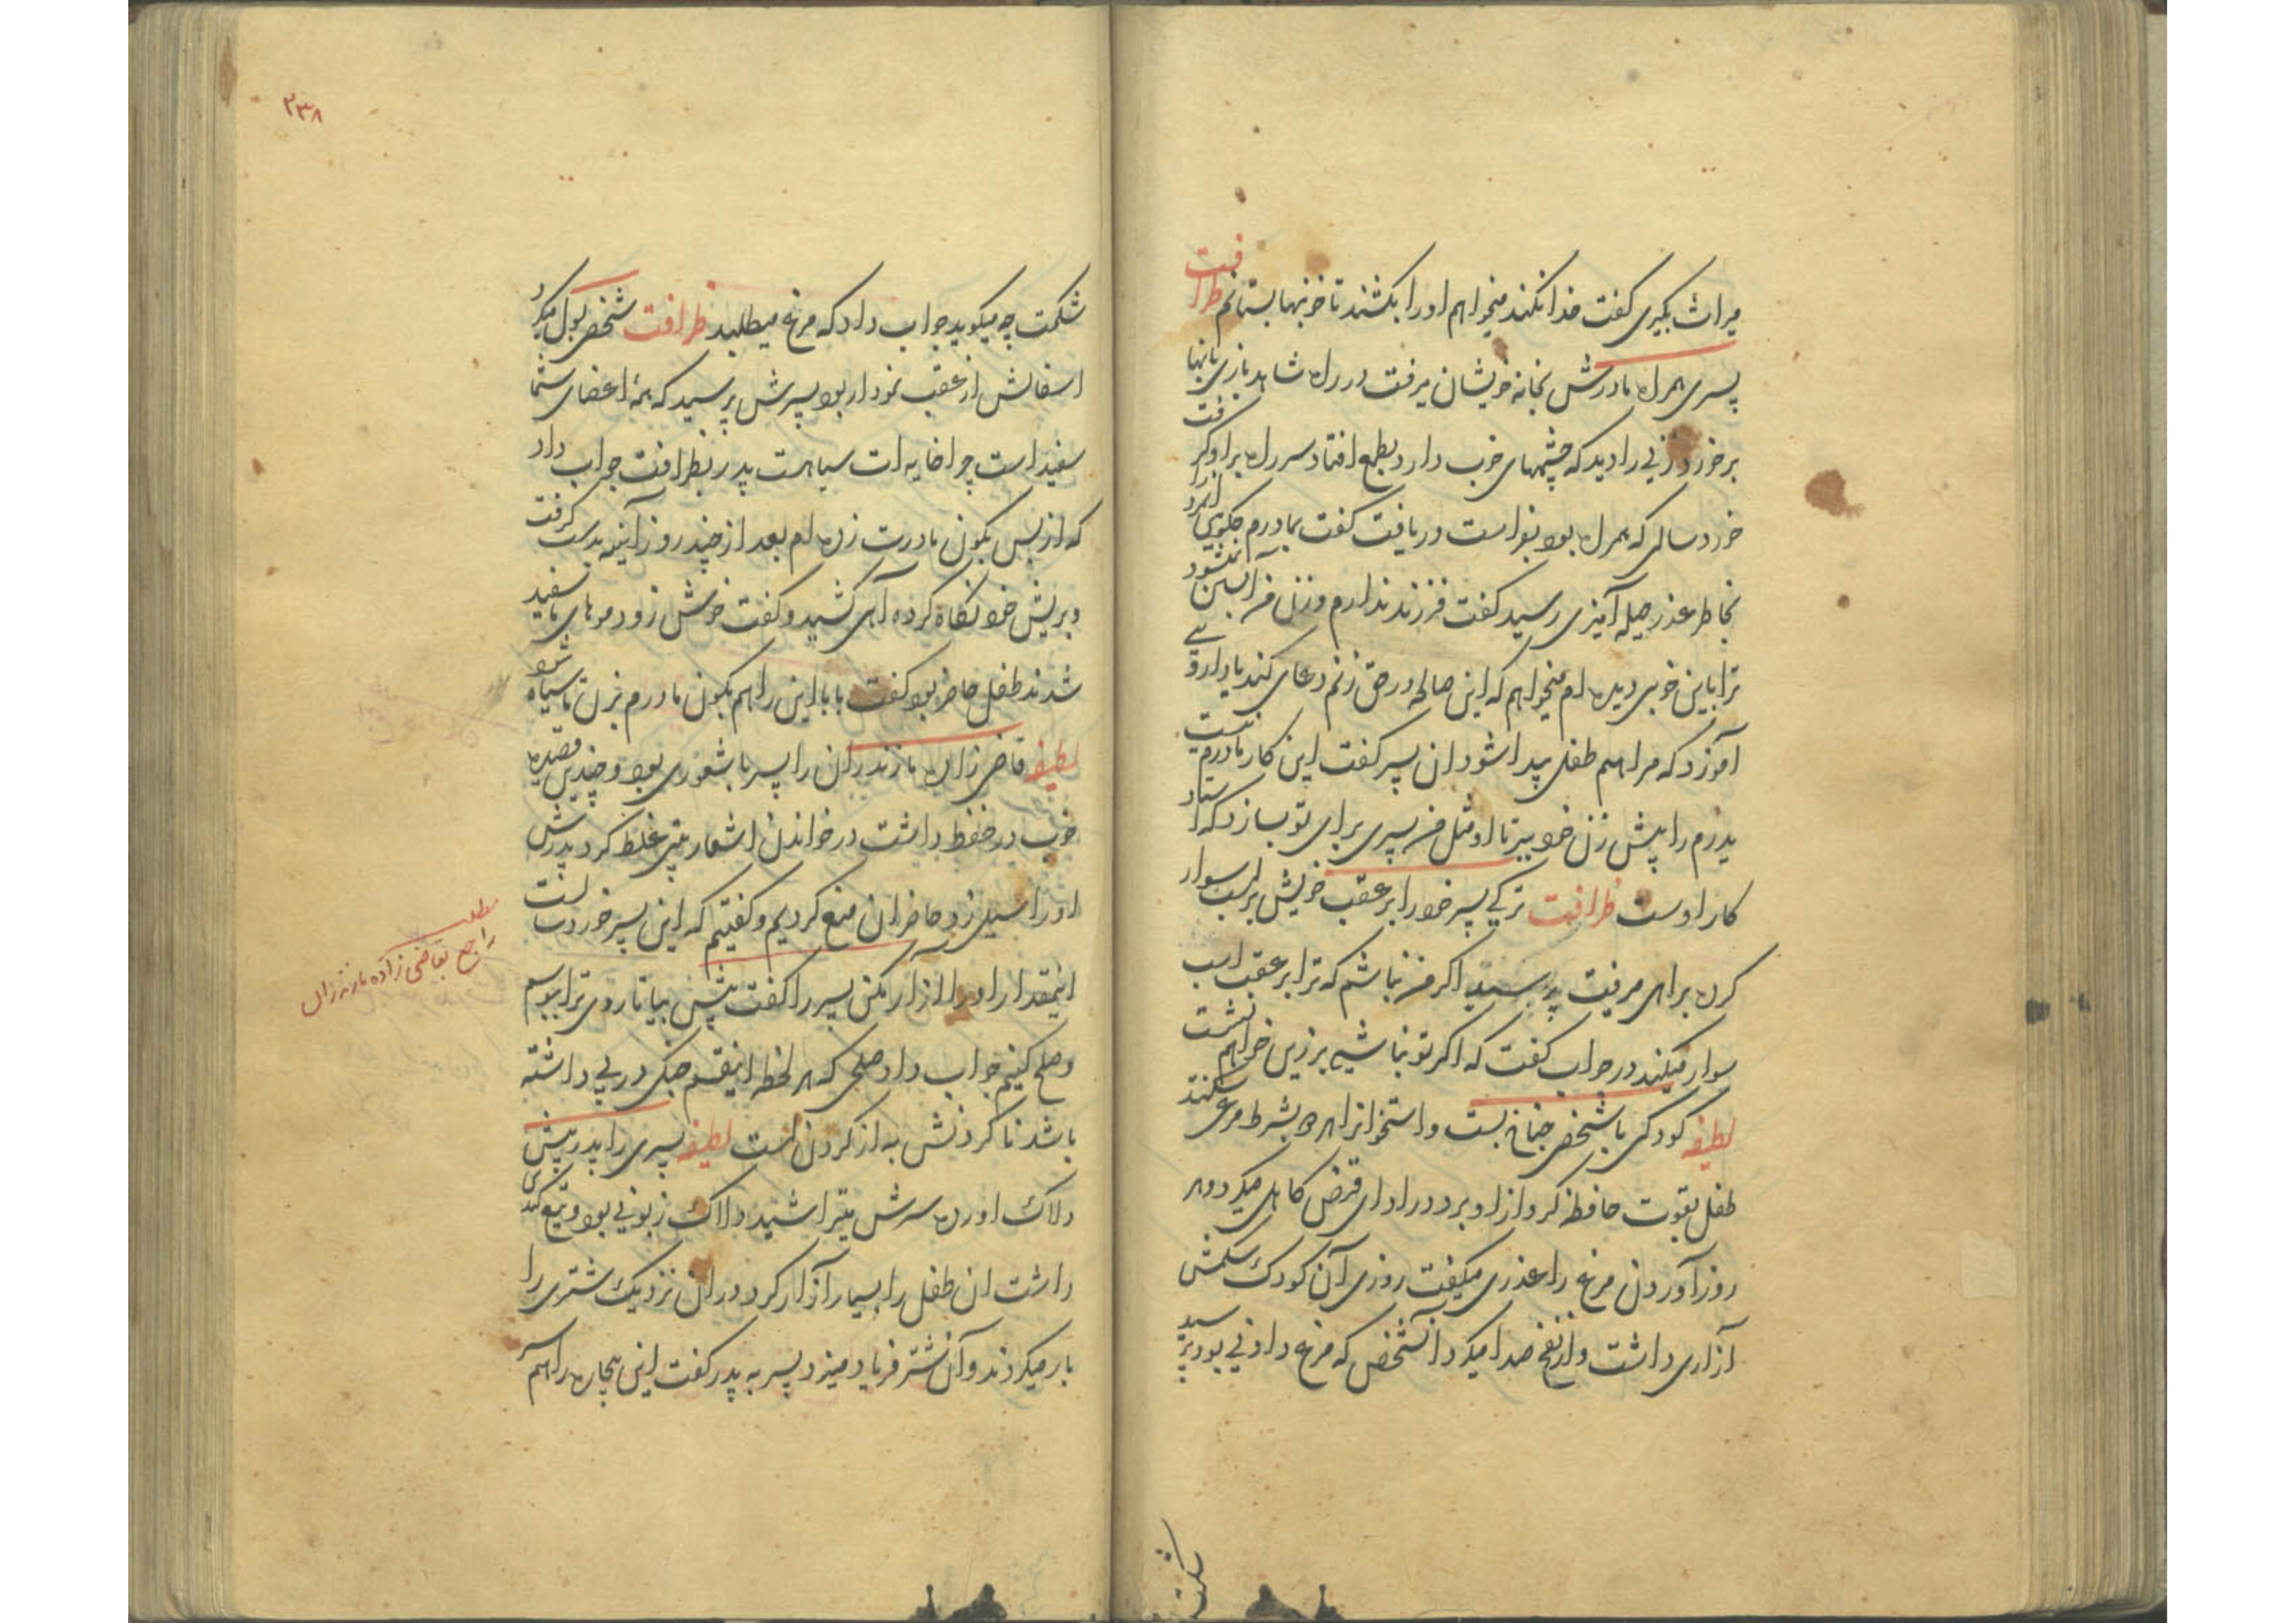 میراث بگیری گفت خدا نکند میخواهم او را بکشند تا خونبها بستانم ظرافت
پسری همراه مادرش بخانه خویشان میرفت در راه شاهد بازی بانها
برخورد زنی را دید که چشمهای خوب دارد بطمع افتاد سر راه بر او گرفت
خورد سالی که همراه بود بفراست دریافت گفت بمادرم چکویی
بخاطر عذر حیله آمیزی رسید گفت فرزند ندارم و زن من آبستن نمیشود
ترا باین خوبی دیده ام میخواهم که این صالحه در حق زنم دعای کند یا داروی
آموزد که مرا هم طفلی پیدا شود ان پسر گفت این کار مادرم نیست
پدرم را پیش زن خود ببر تا او مثل من پسری برای تو بسازد که استاد
کار اوست ظرافت ترکی پسر خود را بر عقب خویش بر اسب سوار
کرده براهی میرفت پرسید اگر من نباشم که ترا بر عقب اسب
سوار میکند در جواب گفت که اگر تو نباشی بر زین خواهم نشست
لطیفه کودکی با شخصی جناغ بست و استخوانرا بشرط مرغی شکند
طفل بقوت حافظه گرو از او برد و در ادای قرض کاهلی میکرد و هر
روز آوردن مرغ را عذری میگفت روزی آن کودک شکمش
آزاری داشت و از نفخ صدا میکرد آنشخص که مرغ دادنی بود پرسید
شکمت
۲۳۸
شکمت چه میکوید جواب داد که مرغ میطلبد ظرافت شخصی بول میکرد
اسفالش از عقب نمودار بود پسرش پرسید که همه اعضای شما
سفید است چرا خایه ات سیاهست پدر بظرافت جواب داد
که از بس بکون مادرت زده ام بعد از چند روز آئینه بدست گرفت
و بریش خود نگاه کرده آهی کشید و گفت خوش زود موهای ما سفید
شدند طفل حاضر بود گفت بابا این را هم بکون مادرم بزن تا سیاه شود
لطیفه قاضی زاده مازندران را پسر با شعوری بود و چندین قصیده
خوب در حفظ داشت در خواندن اشعار بیتی غلط کرد پدرش
او را سیلی زد حاضران منع کردیم و گفتیم که این پسر خوردسالست
اینمقدار او را آزار مکن پسر را گفت پیش بیا تا روی ترا ببوسم
و صلح کنیم جواب داد صلحی که هر لحظه اینقسم جنگی در پی داشته
باشد ناکردنش به از کردن است لطیفه پسری را پدر پیش
دلاک اورده سرش میتراشید دلاک زبونی بود و تیغ کندی
داشت ان طفل را بسیار آزار کرد و در ان نزدیک شتری را
بار میکردند و آن شتر فریاد میزد پسر به پدر گفت این بیچاره را هم سر
مطلب
راجع بقاضی زاده مازندران